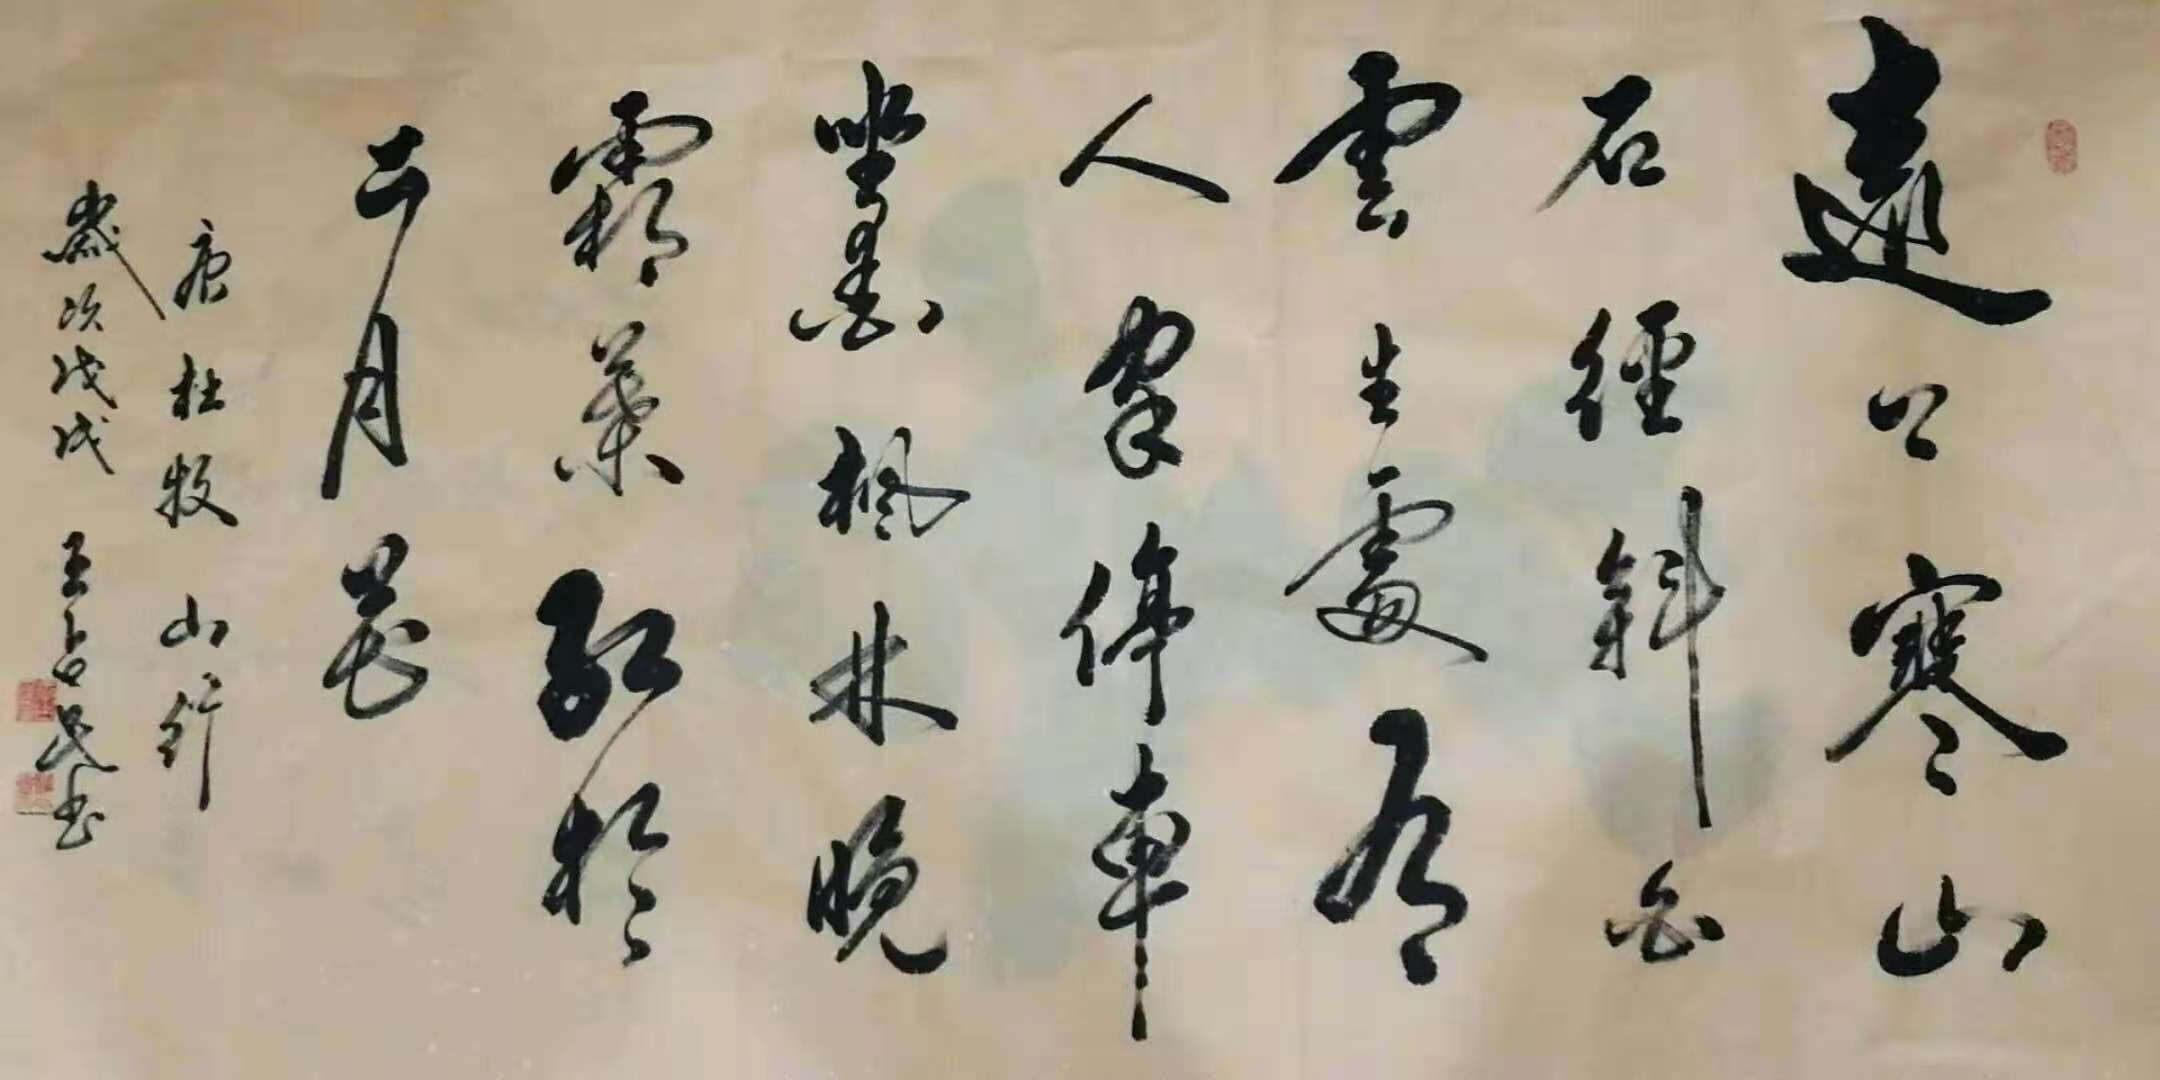 遠上寒山
石徑斜白
雲生處有
人家停車
坐愛楓林晚
霜葉紅於
二月花
唐杜牧山行
歲次戊戌王占民书